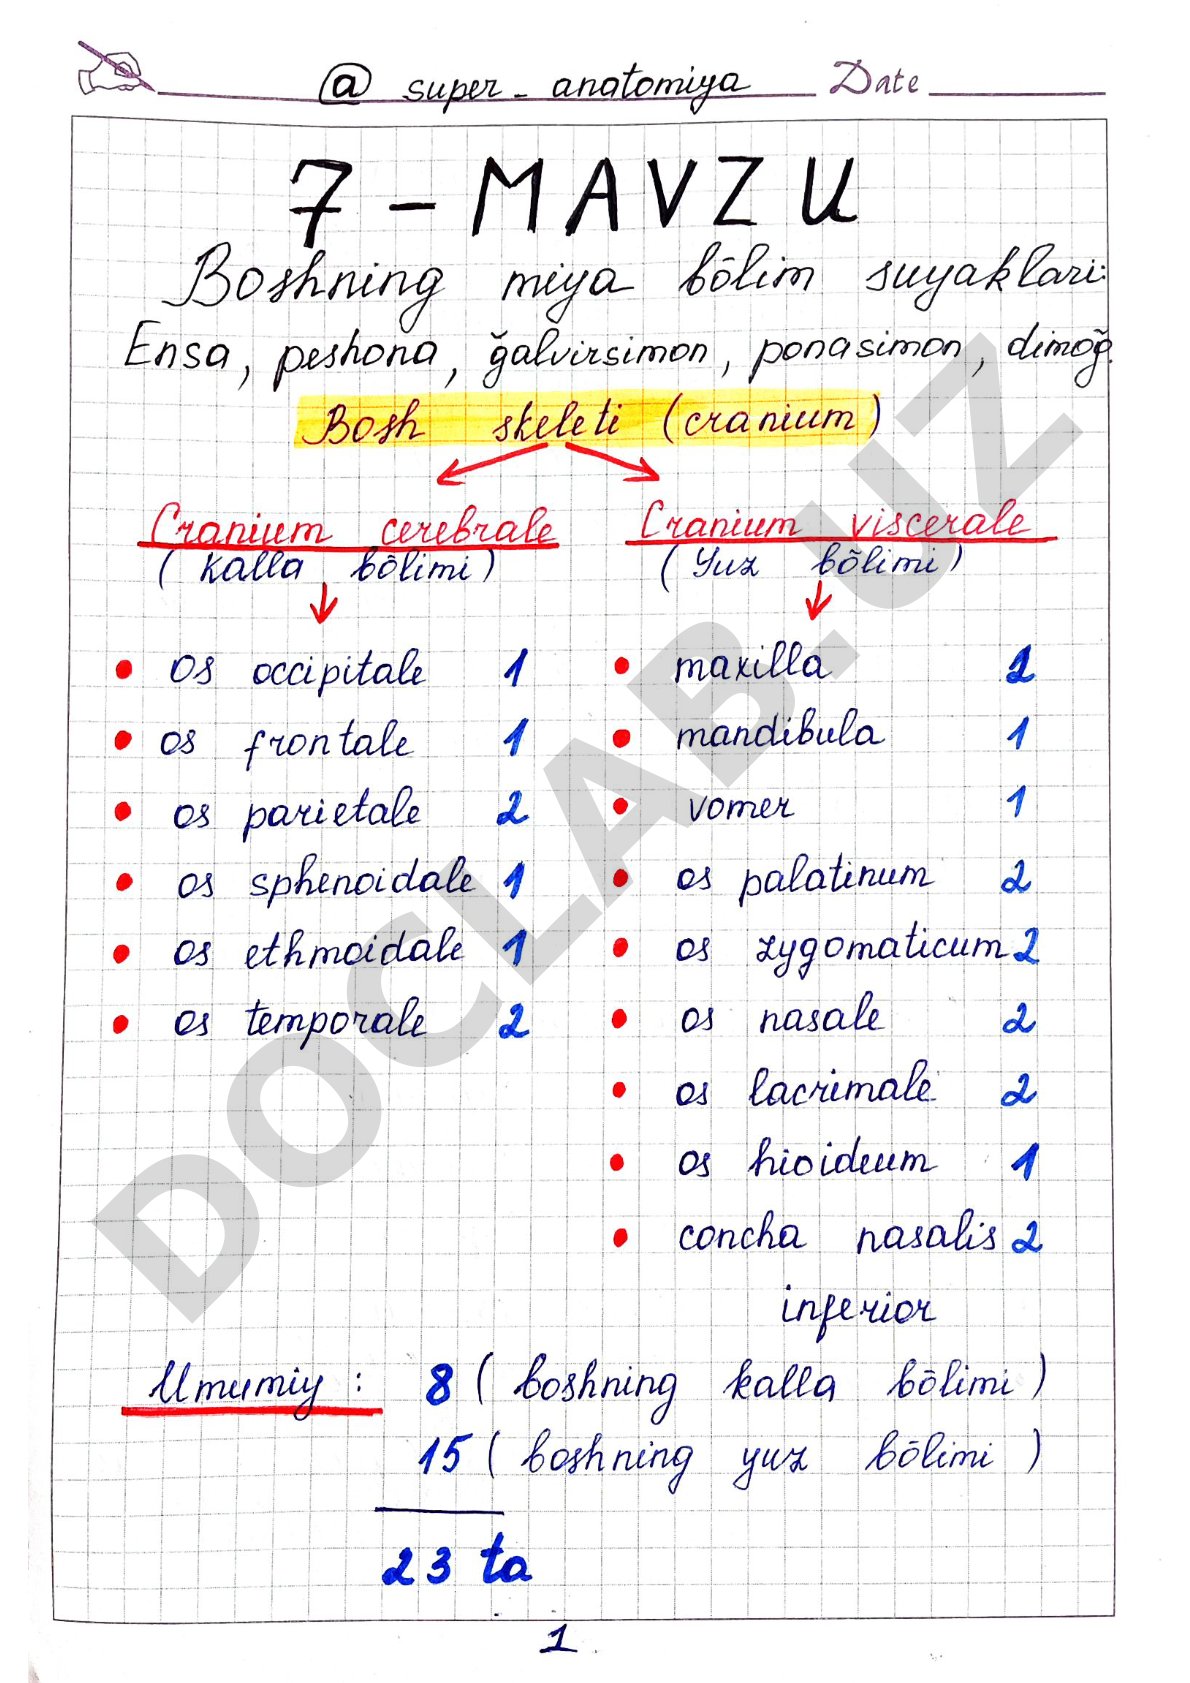 @ super_anatomiya Date
7-MAVZU
Boshning miya bōlim suyaklari:
Ensa, peshona, ğalvirsimon, ponasimon, dimoğ.
Bosh skeleti (cranium)
Cranium cerebrale
(kalla bōlimi)
• os occipitale 1
• os frontale 1
• os parietale 2
• os sphenoidale 1
• os ethmoidale 1
• os temporale 2
Cranium viscerale
(Yuz bōlimi)
• maxilla 2
• mandibula 1
• vomer 1
• os palatinum 2
• os zygomaticum 2
• os nasale 2
• os lacrimale 2
• os hioideum 1
• concha nasalis 2
inferior
Umumiy: 8 (boshning kalla bōlimi)
15 (boshning yuz bōlimi)
23 ta
1
DOCLAB.UZ